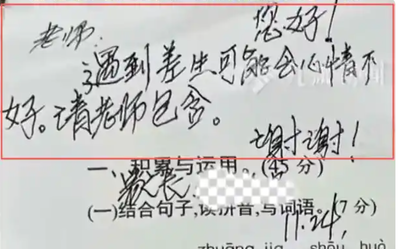 老师: 您好!
遇到差生可能会心情不
好。请老师包含。
谢谢!
一、积累与运用。(45分)
家长:
(一)结合句子,读拼音,写词语。(7分)
11.24
zhuāng jia shōu huò